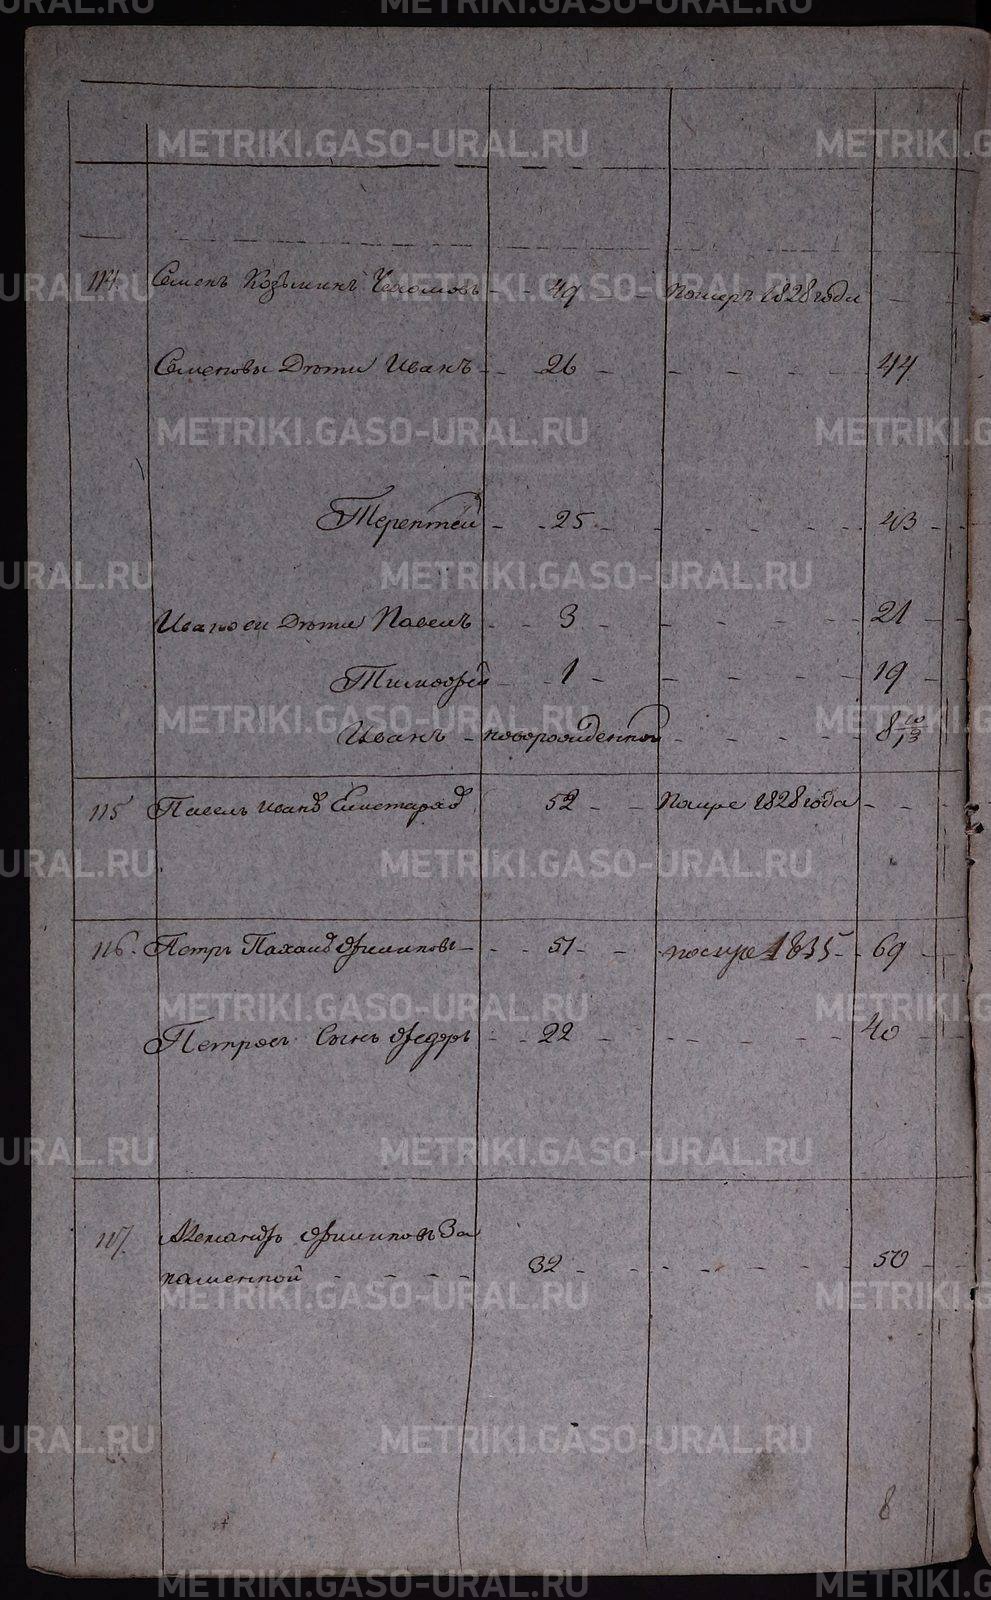 METRIKI.GASO-URAL.RU
114. Семенъ Козьминъ - - 49 - - Померъ 1828 года - -
Семеновы Дѣти Иванъ - - 26 - - - - - 44
Терентей - - 25 - - - - - 43
Ивановы Дѣти Павелъ - - 3 - - - - - 21
Тимофей - - 1 - - - - - 19
Иванъ - новорожденной - - - - 8 10/13
115 Павелъ Иванъ 52 - - Помре 1828 года - - -
116. Петръ Филиповъ - - 51 - - помре 1835 - - 69
Петровъ Сынъ Федоръ - - 22 - - - - - 40
117. Александръ Филиповъ За
каменной - - - - 32 - - - - - 50
8